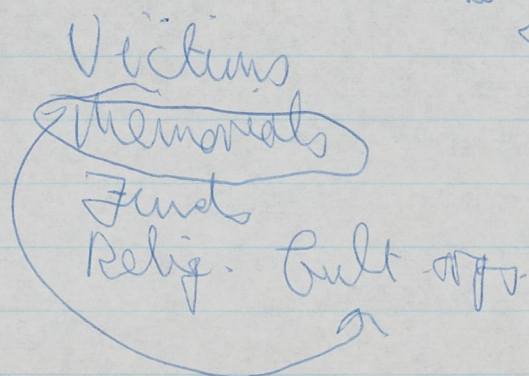 Victims
Memorials
Funds
Relig. Cult. orgs.